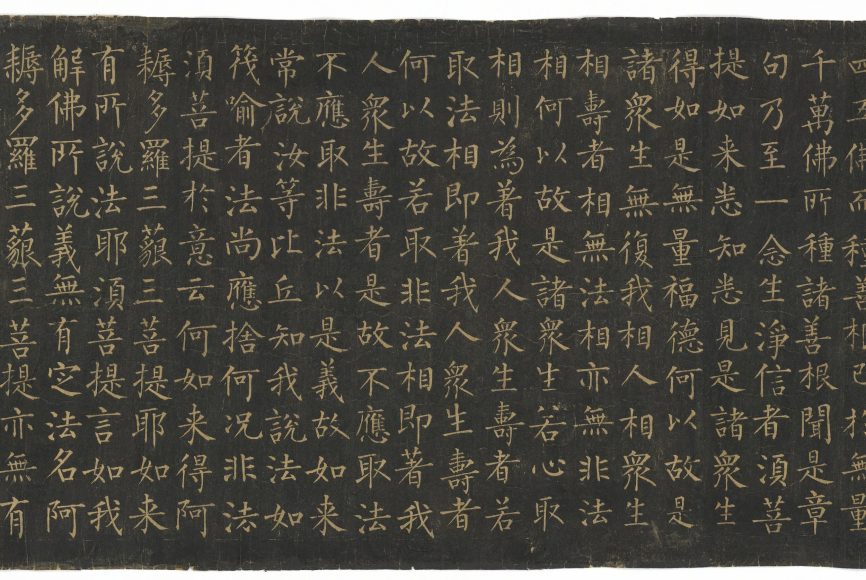 四五佛而種善根已於無量
千萬佛所種諸善根聞是章
句乃至一念生淨信者須菩
提如来悉知悉見是諸衆生
得如是無量福德何以故是
諸衆生無復我相人相衆生
相壽者相無法相亦無非法
相何以故是諸衆生若心取
相則為著我人衆生壽者若
取法相即著我人衆生壽者
何以故若取非法相即著我
人衆生壽者是故不應取法
不應取非法以是義故如来
常說汝等比丘知我說法如
筏喻者法尚應捨何况非法
須菩提於意云何如来得阿
耨多羅三藐三菩提耶如来
有所說法耶須菩提言如我
解佛所說義無有定法名阿
耨多羅三藐三菩提亦無有